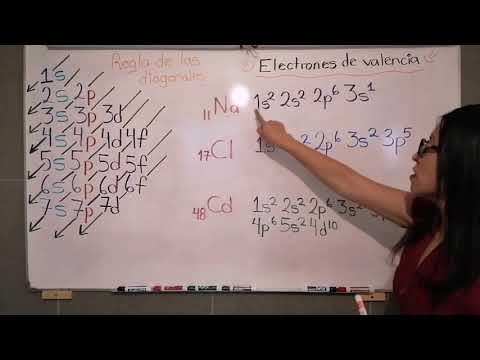 Regla de las
diagonales
Electrones de valencia
1s
2s 2p
3s 3p 3d
4s 4p 4d 4f
5s 5p 5d 5f
6s 6p 6d 6f
7s 7p 7d
11Na 1s² 2s² 2p⁶ 3s¹
17Cl 1s² 2p⁶ 3s² 3p⁵
48Cd 1s² 2s² 2p⁶ 3s²
4p⁶ 5s² 4d¹⁰